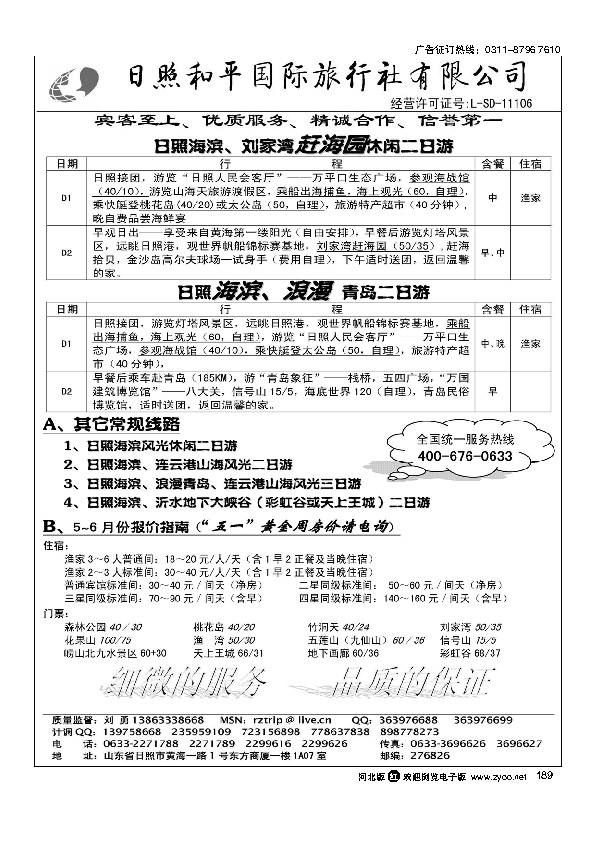 广告征订热线：0311-87967610
日照和平国际旅行社有限公司
经营许可证号:L-SD-11106
宾客至上、优质服务、精诚合作、信誉第一
日照海滨、刘家湾赶海园休闲二日游
日期 行 程 含餐 住宿
D1 日照接团，游览“日照人民会客厅”——万平口生态广场，参观海战馆
（40/10），游览山海天旅游渡假区，乘船出海捕鱼，海上观光（60，自理），
乘快艇登桃花岛(40/20)或太公岛（50，自理），旅游特产超市（40分钟），
晚自费品尝海鲜宴
中 渔家
D2 早观日出——享受来自黄海第一缕阳光（自由安排），早餐后游览灯塔风景
区，远眺日照港，观世界帆船锦标赛基地，刘家湾赶海园（50/35），赶海
拾贝，金沙岛高尔夫球场一试身手（费用自理），下午适时送团，返回温馨
的家。
早、中
日照海滨、浪漫 青岛二日游
日期 行 程 含餐 住宿
D1 日照接团，游览灯塔风景区，远眺日照港，观世界帆船锦标赛基地，乘船
出海捕鱼，海上观光（60，自理），游览“日照人民会客厅” 万平口生
态广场，参观海战馆（40/10），乘快艇登太公岛（50，自理），旅游特产超
市（40分钟），
中、晚 渔家
D2 早餐后乘车赴青岛（185KM），游“青岛象征”——栈桥，五四广场，“万国
建筑博览馆”——八大关，信号山15/5，海底世界120（自理），青岛民俗
博览馆，适时送团，返回温馨的家。
早
A、其它常规线路
1、日照海滨风光休闲二日游
2、日照海滨、连云港山海风光二日游
3、日照海滨、浪漫青岛、连云港山海风光三日游
4、日照海滨、沂水地下大峡谷（彩虹谷或天上王城）二日游
全国统一服务热线
400-676-0633
B、5~6月份报价指南（“五一”黄金周房价请电询）
住宿：
渔家3~6人普通间：18~20元/人/天（含1早2正餐及当晚住宿）
渔家2~3人标准间：30~40元/人/天（含1早2正餐及当晚住宿）
普通宾馆标准间：30~40元/间天（净房） 二星同级标准间： 50~60元/间天（净房）
三星同级标准间：70~90元/间天（含早） 四星同级标准间：140~160元/间天（含早）
门票：
森林公园 40/30 桃花岛 40/20 竹洞天 40/24 刘家湾 50/35
花果山 100/75 渔 湾 50/30 五莲山（九仙山）60/36 信号山 15/5
崂山北九水景区 60+30 天上王城 66/31 地下画廊 60/36 彩虹谷 68/37
细微的服务 品质的保证
质量监督：刘 勇 13863338668 MSN：rztrip @ live.cn QQ：363976688 363976699
计调QQ：139758668 235959109 723156898 778637838 898778273
电 话：0633-2271788 2271789 2299616 2299626 传真：0633-3696626 3696627
地 址：山东省日照市黄海一路1号东方商厦一楼1A07室 邮编：276826
河北版 欢迎浏览电子版 www.zyoo.net 189